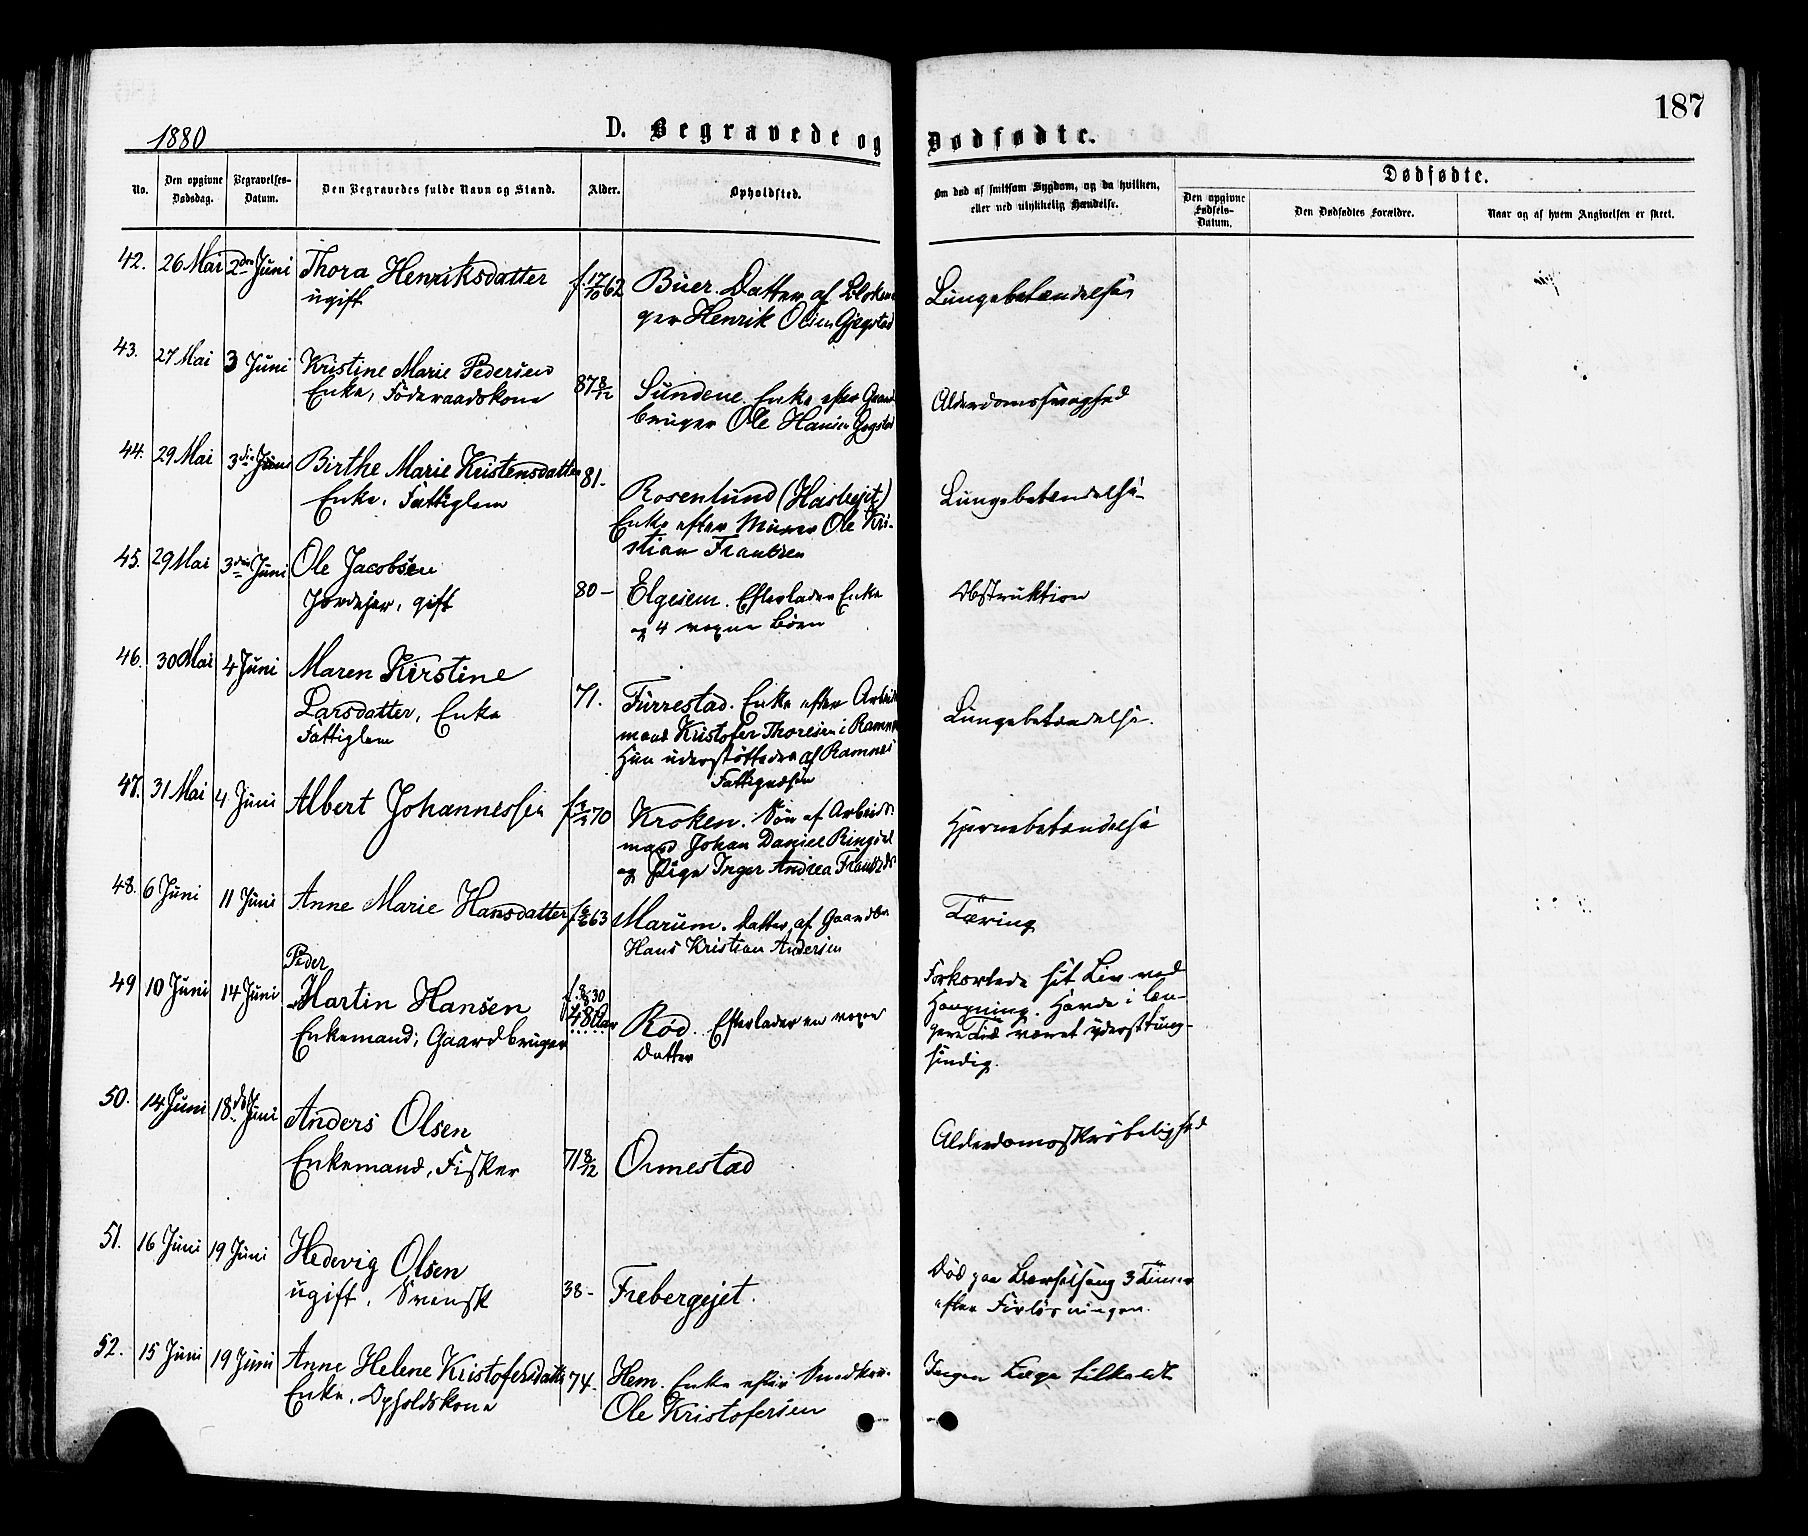 187
1880
D. Begravede og Dødfødte.
No.
Den opgivne Dødsdag.
Begravelses-Datum.
Den Begravedes fulde Navn og Stand.
Alder.
Opholdsted.
Om død af smitsom Sygdom, og da hvilken,
eller ved ulykkelig Hændelse.
Dødfødte.
Den opgivne Fødsels-Datum.
Den Dødfødtes Forældre.
Naar og af hvem Angivelsen er skeet.
42. 26 Mai 2den Juni Thora Henriksdatter f. 17/10 62 Buer. Datter af
ugift ger Henrik Olsen Gjegstad
Lungebetændelse
43. 27 Mai 3 Juni Kristine Marie Pedersen
Enke, Föderaadskone 87 8/12 Sundene. Enke efter Gaard
bruger Ole Hansen Gogstad
Alderdomssvaghed
44. 29 Mai 3die Juni Birthe Marie Kristensdatter 81-
Enke. Fattiglem Rosenlund (Haslejet)
Enke efter Murer Ole Kri-
stian Frantzen
Lungebetændelse
45. 29 Mai 3die Juni Ole Jacobsen
Jordejer, gift 80- Elgesem. Efterlader Enke
og 4 voxne Börn
Obstruktion
46. 30 Mai 4 Juni Maren Kirstine
Larsdatter, Enke 71. Furrestad. Enke efter Arbeids
Fattiglem mand Kristofer Thoresen i Ramnes
Hun understøttedes af Ramnes
Fattigvæsen
Lungebetændelse.
47. 31 Mai 4 Juni Albert Johannessen 70 Kroken. Søn af Arbeids
mand Johan Daniel Ringdal
og Pige Inger Andrea
Hjernebetændelse
48. 6 Juni 11 Juni Anne Marie Hansdatter 63 Marum. Datter af Gaardbr
Hans Kristian Andersen
Tæring
Peder
49 10 Juni 14 Juni Martin Hansen f. 30
Enkemand; Gaardbruger 48 Aar Rød. Efterlader en voxen
Datter
Forkortede sit Liv ved
Hængning. Havde i læn-
gere Tid været yderst tung-
sindig.
50. 14 Juni 18de Juni Anders Olsen
Enkemand, Fisker 71 8/12 Ormestad
Alderdomsskrøbelighed
51. 16 Juni 19 Juni Hedevig Olsen
ugift. Svensk 38- Frebergejet.
Död paa Barselseng 3 Timer
efter Forløsningen.
52. 15 Juni 19 Juni Anne Helene Kristofersdatter 74. Hem. Enke efter
Enke, Opholdskone Ole Kristofersen
Ingen Læge tilkaldt